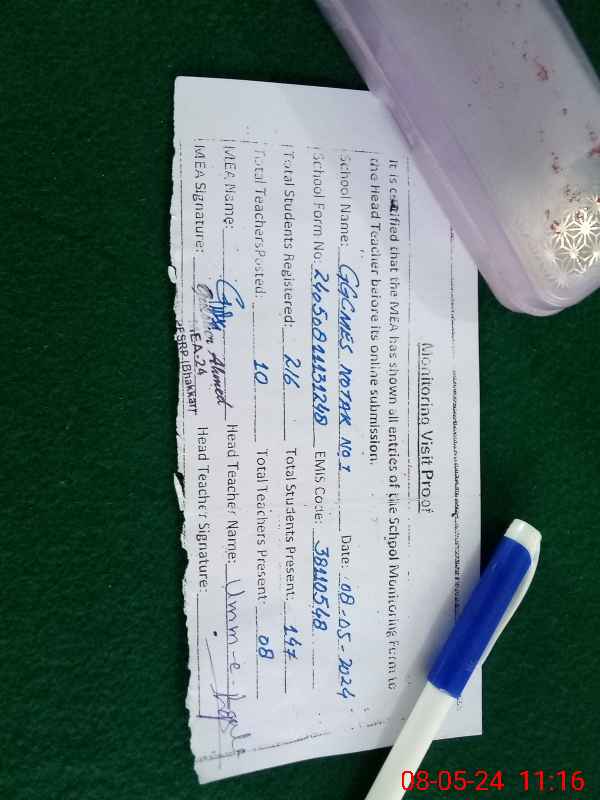 Monitoring Visit Proof
It is certified that the MEA has shown all entries of the School Monitoring Form to
the Head Teacher before its online submission.
School Name: GGCMES NOTAK NO 1 Date: 08-05-2024
School Form No: EMIS Code: 38110548
Total Students Registered: 216 Total Students Present: 147
Total Teachers Posted: 10 Total Teachers Present: 08
MEA Name: Ahmed Head Teacher Name: Umm-e-
MEA Signature: Head Teacher Signature:
MEA-24
PESRP (Bhakkar)
08-05-24 11:16